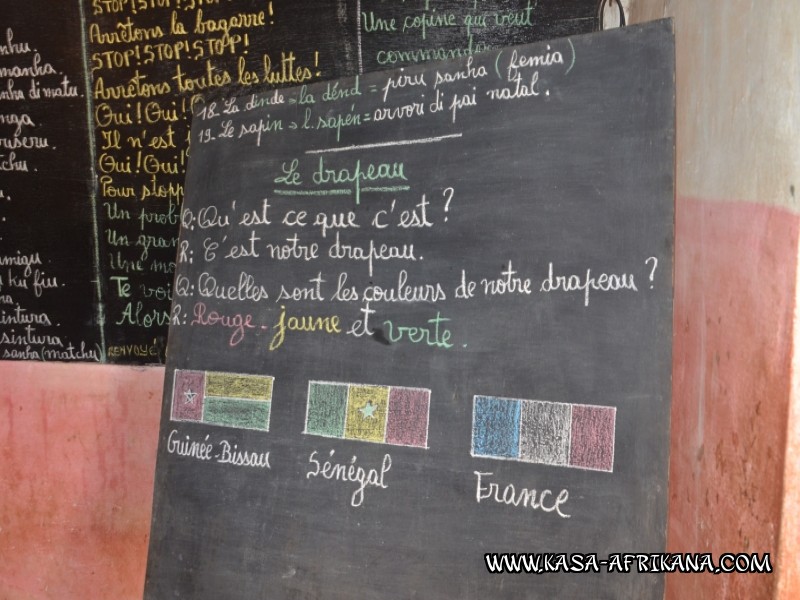 nhu.
manha.
nha di matu.
nga.
ruseru.
tchu.
amigu.
a ku fiu.
intura.
sintura.
sanha (matchu)
STOP! STOP! STOP!
Arrêtons la bagarre!
STOP! STOP! STOPP!
Arrêtons toutes les luttes!
Oui! Oui!
Il n'est
Oui! Oui!
Pour stopp
Un prob
Un gran
Une mo
Te voi
Alors
RENVOYÉ
Une copine qui veut
commander
18. La dinde = la dénd = piru sanha (femia)
19. Le sapin = l. sapén = arvori di pai natal.
Le drapeau
Q: Qu'est ce que c'est?
R: C'est notre drapeau.
Q: Quelles sont les couleurs de notre drapeau?
R: Rouge. jaune et verte.
Guinée-Bissau
Sénégal
France
WWW.KASA-AFRIKANA.COM